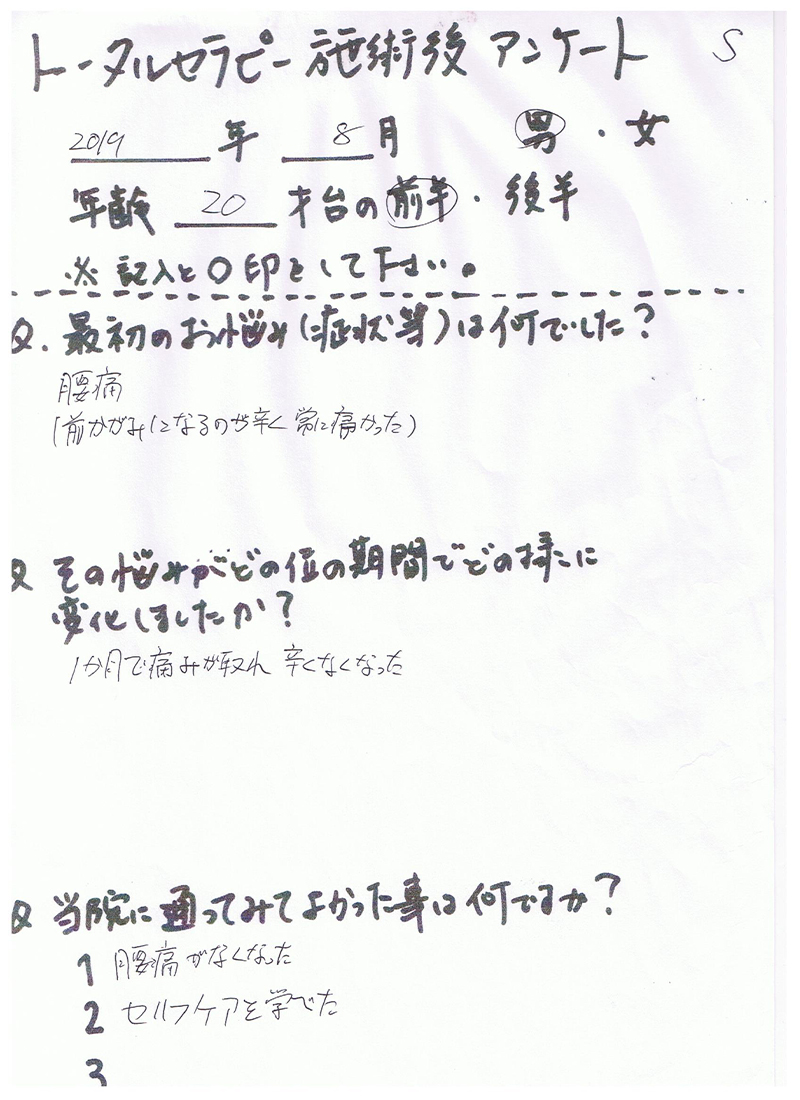 トータルセラピー施術後 アンケート S
2019 年 8月 男・女
年齢 20 才台の前半・後半
※記入と〇印をして下さい。
Q. 最初のお悩み(症状等)は何でしたか?
腰痛
(前かがみになるのが辛く常に痛かった)
Q その悩みがどの位の期間でどの様に
変化しましたか?
1か月で痛みが取れ 辛くなくなった
Q 当院に通ってみてよかった事は何ですか?
1 腰痛がなくなった
2 セルフケアを学べた
3